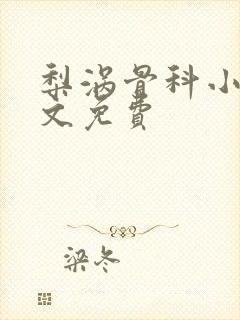 梨涡骨科小
文免費
梁冬